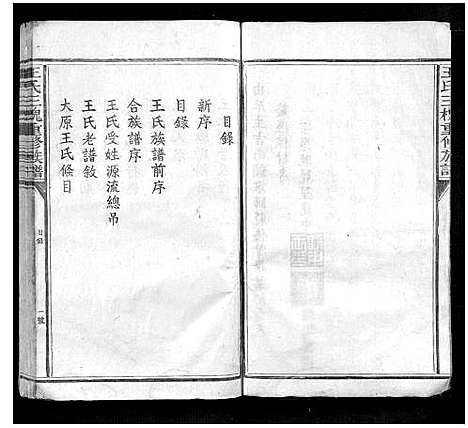 目錄
新序
目錄
王氏族譜前序
合族譜序
王氏受姓源流總吊
王氏老譜敘
大原王氏條目
王氏三槐重修族譜
目錄
一號
王氏三槐重修族譜